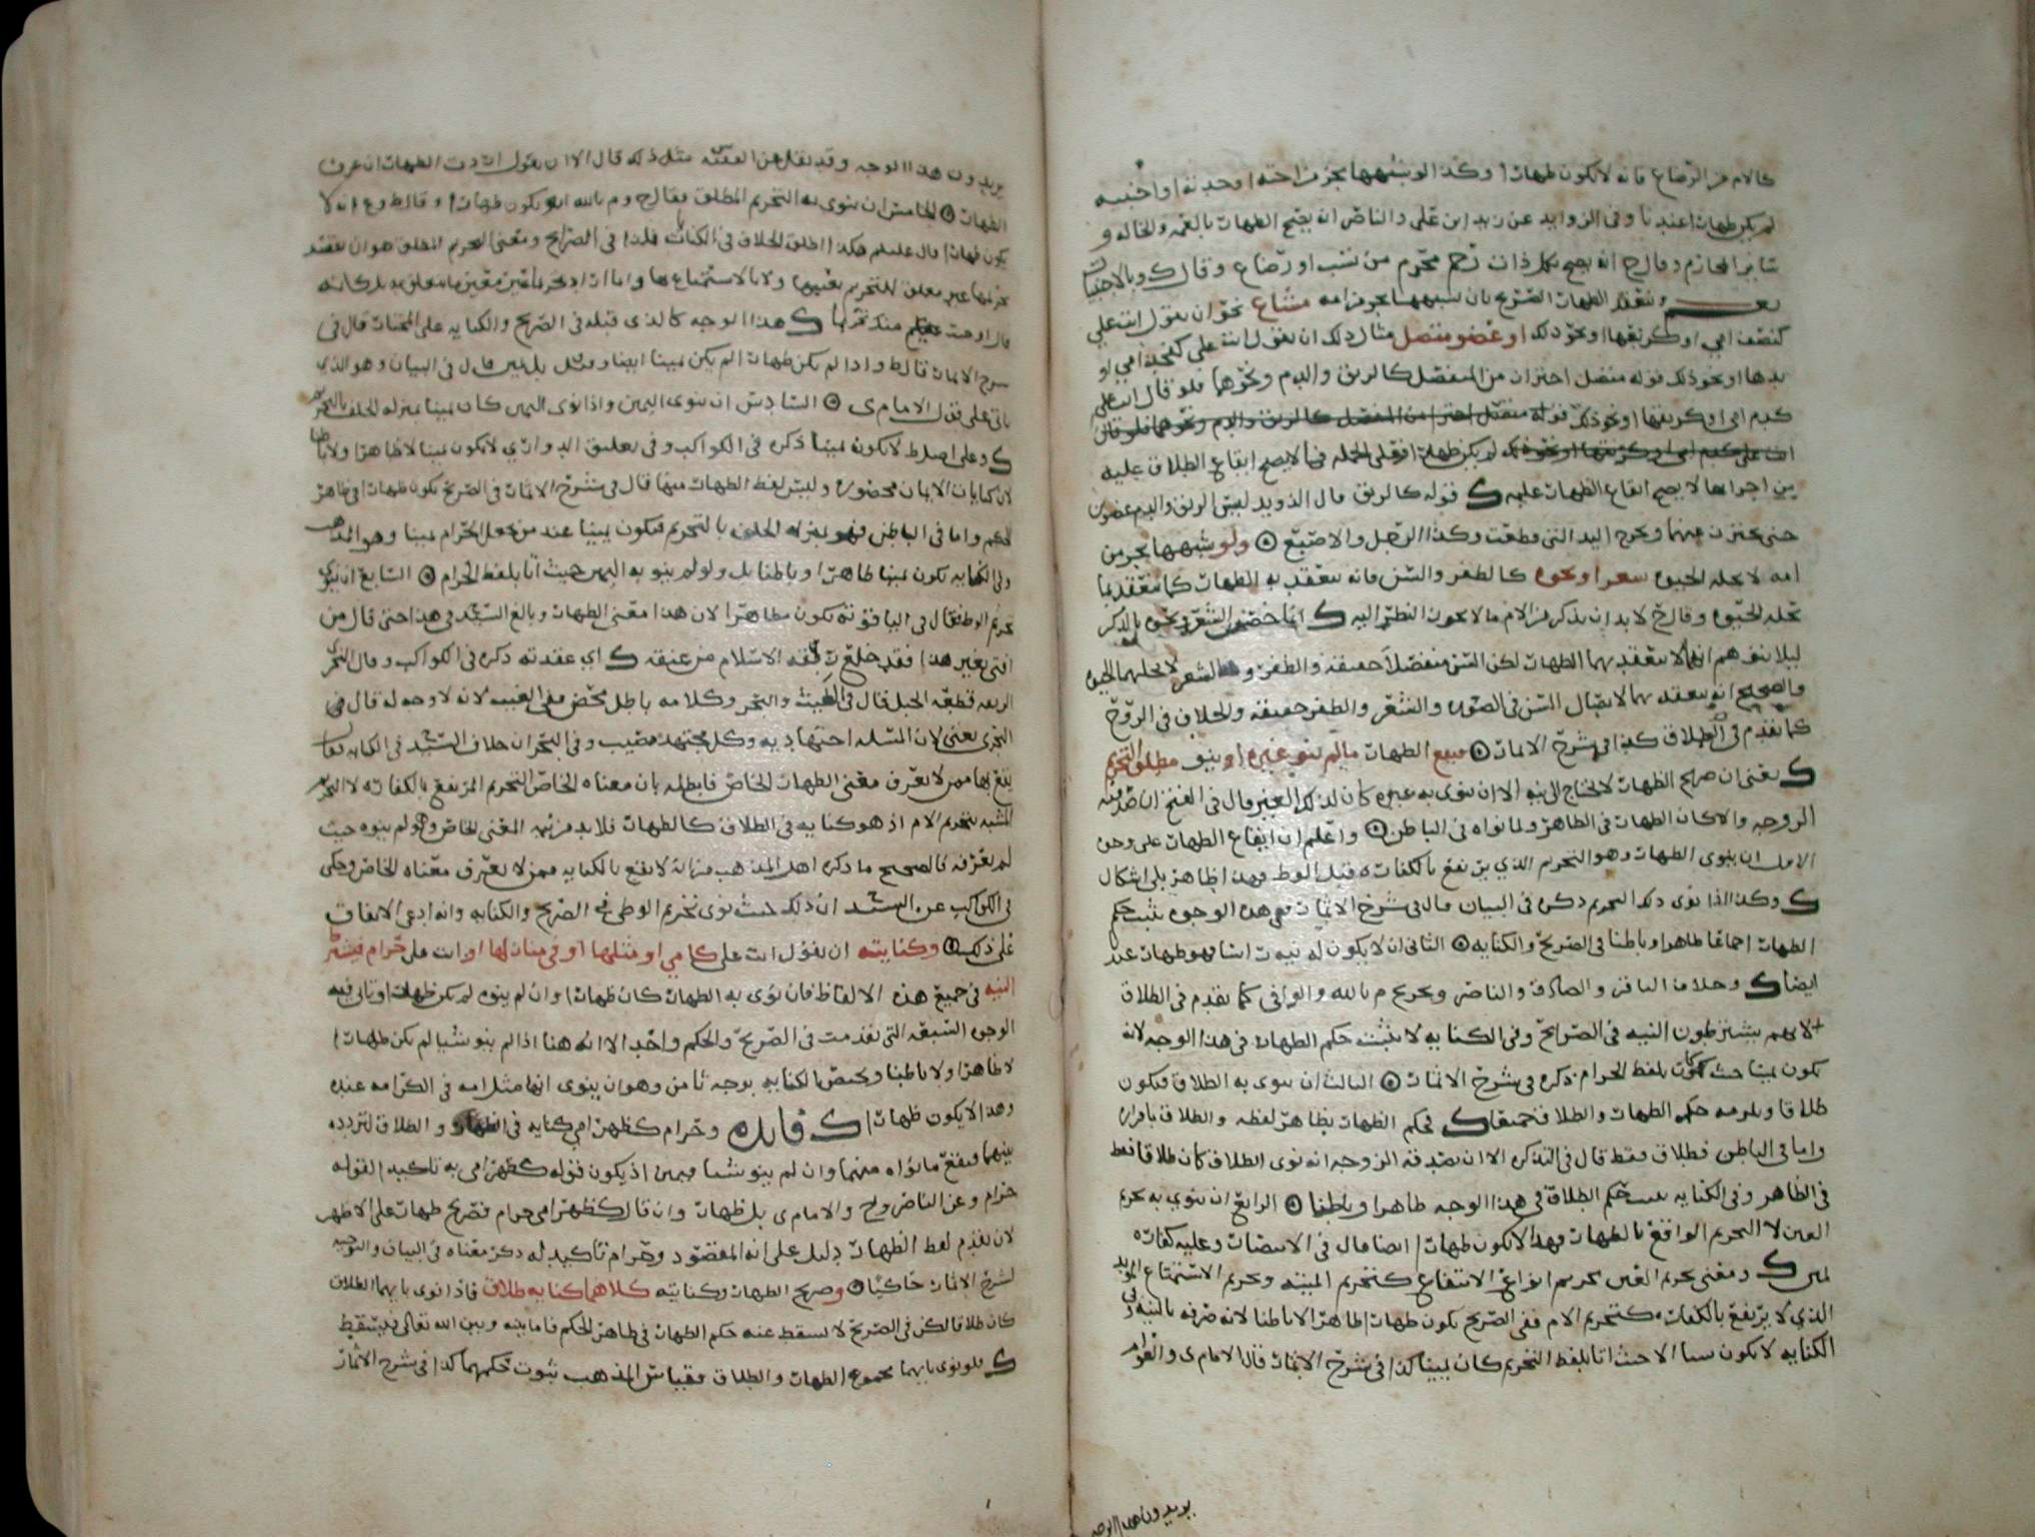 كالام من الرضاع فانه لا يكون ظهارا وكذا لو شبهها بجزء من اخته او جدته او اجنبيه
لم يكن ظهارا عندنا وفي الزوايد عن زيد ابن علي والناصر انه يصح الظهار بالعمه والخاله و
سائر المحارم وقال ح انه يصح بكل ذات رحم محرم من نسب او رضاع وقال ك وبالاجنبيات
وينعقد الظهار الصريح بان يشبهها بجزء من امه مشاع نحو ان يقول انت علي
كنصف امي او كربعها او نحو ذلك او عضو متصل مثال ذلك ان يقول انت علي كفخذ امي او
يدها او نحو ذلك قوله متصل احتراز من المنفصل كالريق والدم ونحوهما فلو قال انت علي
كدم امي او كريقها او نحو ذلك قوله متصل احتراز من المنفصل كالريق والدم ونحوهما فلو قال
انت علي كدم امي او كريقها او نحو ذلك لم يكن ظهارا فعلى الجمله فما لا يصح ايقاع الطلاق عليه
من اجزائها لا يصح ايقاع الظهار عليه ك قوله كالريق قال الذويد ليس الريق والدم عضوين
حتى يحترز عنهما ويخرج اليد التي قطعت وكذا الرجل والاصبع ولو شبهها بجزء من
امه لا يحله الحيوه شعر او نحوه كالظفر والسن فانه ينعقد به الظهار كما ينعقد بما
تحله الحيوه وقال ح لا بد ان يذكر من الام ما لا يجوز النظر اليه ك انما خص الشعر ونحوه بالذكر
ليلا يتوهم انها لا ينعقد بهما الظهار لكن السن متصل حقيقه والظفر والشعر لا يحلهما الحيوه
والصحيح انه ينعقد بهما لاتصال السن في الصوره والشعر والظفر حقيقه والخلاف في الروح
كما تقدم في الطلاق كذا في شرح الاثمار فيقع الظهار ما لم ينو غيره او ينو مطلق التحريم
ك يعني ان صريح الظهار لا يحتاج الى نيه الا ان ينوي به غيره كان لذلك الغير قال في الفتح ان صدقته
الزوجه والا كان الظهار في الظاهر ولما نواه في الباطن واعلم ان ايقاع الظهار على وجوه
الاول ان ينوي الظهار وهو التحريم الذي يرتفع بالكفاره قبل الوطء فهذا ظاهر بلا اشكال
ك وكذا اذا نوى ذلك التحريم ذكره في البيان قال في شرح الاثمار ففي هذه الوجوه يثبت حكم
الظهار اجماعا ظاهرا وباطنا في الصريح والكنايه الثاني ان لا يكون له نيه راسا فهو ظهار عندنا
ايضا ك وخلاف الباقر والصادق والناصر وتخريج م بالله والوافي كما تقدم في الطلاق
لانهم يشترطون النيه في الصرائح وفي الكنايه لا يثبت حكم الظهار في هذا الوجه لانه
يكون يمينا حيث كان بلفظ الحرام ذكره في شرح الاثمار الثالث ان ينوي به الطلاق فيكون
طلاقا ويلزمه حكم الظهار والطلاق جميعا ك فحكم الظهار بظاهر لفظه والطلاق باقراره
واما في الباطن فطلاق فقط قال في التذكره الا ان تصدقه الزوجه انه نوى الطلاق كان طلاقا فقط
في الظاهر وفي الكنايه يثبت حكم الطلاق في هذا الوجه ظاهرا وباطنا الرابع ان ينوي به تحريم
العين لا التحريم الواقع بالظهار فهذا لا يكون ظهارا ايضا قال في الانتصار وعليه كفاره
يمين ك ومعنى تحريم العين تحريم انواع الانتفاع كتحريم الميته وتحريم الاستمتاع المؤبد
الذي لا يرتفع بالكفاره كتحريم الام ففي الصريح يكون ظهارا ظاهرا لا باطنا لانه صرفه بالنيه وفي
الكنايه لا يكون شيئا الا حيث اتا بلفظ التحريم كان يمينا كذا في شرح الاثمار قال الامام ي والقوم
يريدون هذا الوجه
يريدون هذا الوجه وقد نقل عن الفقيه س مثل ذلك قال الا ان يقول اردت الظهار ان عرف
الظهار الخامس ان ينوي به التحريم المطلق فقال ح و م بالله انه يكون ظهارا وقال ط و ع انه لا
يكون ظهارا قال عليلم هكذا اطلق الخلاف في الكتاب قلنا في الصرايح ومعنى التحريم المطلق هو ان يقصد
تحريمها غير معلق للتحريم بعينها ولا بالاستمتاع بها واما اراد تحريما غير معين ما تعلق به بل كانه
قال اوجبت عليكم منك تحريما ك هذا الوجه كالذي قبله في الصريح والكنايه على المختار قال في
شرح الاثمار قال ط واذا لم يكن ظهارا لم يكن يمينا ايضا وقيل بل يمين قال في البيان وهو الذي
ياتي على قول الامام ي السادس ان ينوي اليمين واذا نوى اليمين كان يمينا بمنزله الحلف بالتحريم
ك وعلى اصل ط لا يكون يمينا ذكره في الكواكب وفي تعليق الدواري لا يكون يمينا لا ظاهرا ولا باطنا
لان كنايات الايمان محصوره وليس لفظ الظهار منها قال في شرح الاثمار في الصريح يكون ظهارا في ظاهر
الحكم واما في الباطن فهو بمنزله الحلف بالتحريم فيكون يمينا عند من يجعل الحرام يمينا وهو المذهب
وفي الكنايه يكون يمينا ظاهرا وباطنا بل ولو لم ينو به اليمين حيث اتا بلفظ الحرام السابع ان ينوي
تحريم الوطء فقال في الياقوته يكون مظاهرا لان هذا معنى الظهار وبالغ السيد في هذا حتى قال من
افتى بغير هذا فقد خلع ربقه الاسلام من عنقه ك اي عقدته ذكره في الكواكب وقال النجري
الربقه قطعه الحبل قال في الغيث والبحر وكلامه باطل محض ففي الغيث لانه لا وجه له قال في
النجري يعني لان المسله اجتهاديه وكل مجتهد مصيب وفي البحر ان خلاف السيد في الكنايه انما
يقع بها ممن لا يعرف معنى الظهار الخاص فابطله بان معناه الخاص التحريم المرتفع بالكفاره لا التحريم
المشبه بتحريم الام اذ هو كنايه في الطلاق كالظهار فلا بد من نيه المعنى الخاص وهو لم ينوه حيث
لم يعرفه فالصحيح ما ذكره اهل المذهب من انه لا يقع بالكنايه ممن لا يعرف معناه الخاص وحكى
في الكواكب عن السيد ان ذلك حيث نوى تحريم الوطي في الصريح والكنايه وانه ادعى الاتفاق
على ذلك وكنايته ان يقول انت علي كامي او مثلها او في منازلها او انت علي حرام فيشترط
النيه في جميع هذه الالفاظ فان نوى به الظهار كان ظهارا وان لم ينوه لم يكن ظهارا وتاتي فيه
الوجوه السبعه التي تقدمت في الصريح والحكم واحد الا انه هنا اذا لم ينو شيئا لم يكن ظهارا
لا ظاهرا ولا باطنا ويختص الكنايه بوجه ثامن وهو ان ينوي انها مثل امه في الكرامه عنده
وهذا لا يكون ظهارا ك فايده وحرام كظهر امي كنايه في الظهار والطلاق لتردده
بينهما فيقع ما نواه منهما وان لم ينو شيئا فيمين اذ يكون قوله كظهر امي به تاكيدا لقوله
حرام وعن الناصر وح والامام ي بل ظهار وان قال كظهر امي حرام فصريح ظهار على الاظهر
لان تقدم لفظ الظهار دليل على انه المقصود وحرام تاكيد له ذكر معناه في البيان والتوجيه
لشرح الاثمار حاكيا وصريح الظهار وكنايته كلاهما كنايه طلاق فاذا نوى بايهما الطلاق
كان طلاقا لكن في الصريح لا يسقط عنه حكم الظهار في ظاهر الحكم فاما بينه وبين الله تعالى فيسقط
ك فلو نوى بايهما مجموع الظهار والطلاق فقياس المذهب ثبوت حكمهما كذا في شرح الاثمار